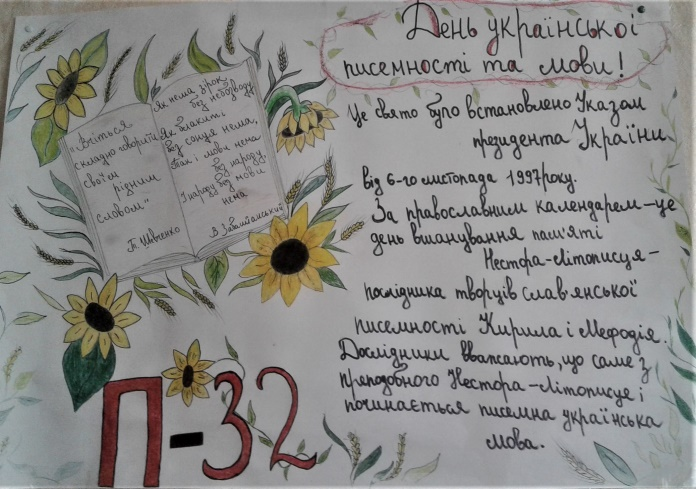 День української
писемності та мови!
"Вчіться
складно говорити
своїм
рідним
словом"
П. Шевченко
Як нема зірок
без небозводу
Як блакить
без сонця нема,
Так і мови нема
без народу
І народу без мови
нема
В. Забаштанський
Це свято було встановлено Указом
президента України
від 6-го листопада 1997року.
За православним календарем-це
день вшанування пам'яті
Нестора-Літописця-
послідника творців слав'янської
писемності Кирила і Мефодія.
Дослідники вважають, що саме з
преподобного Нестора-Літописце і
починається писемна українська
мова.
П-32